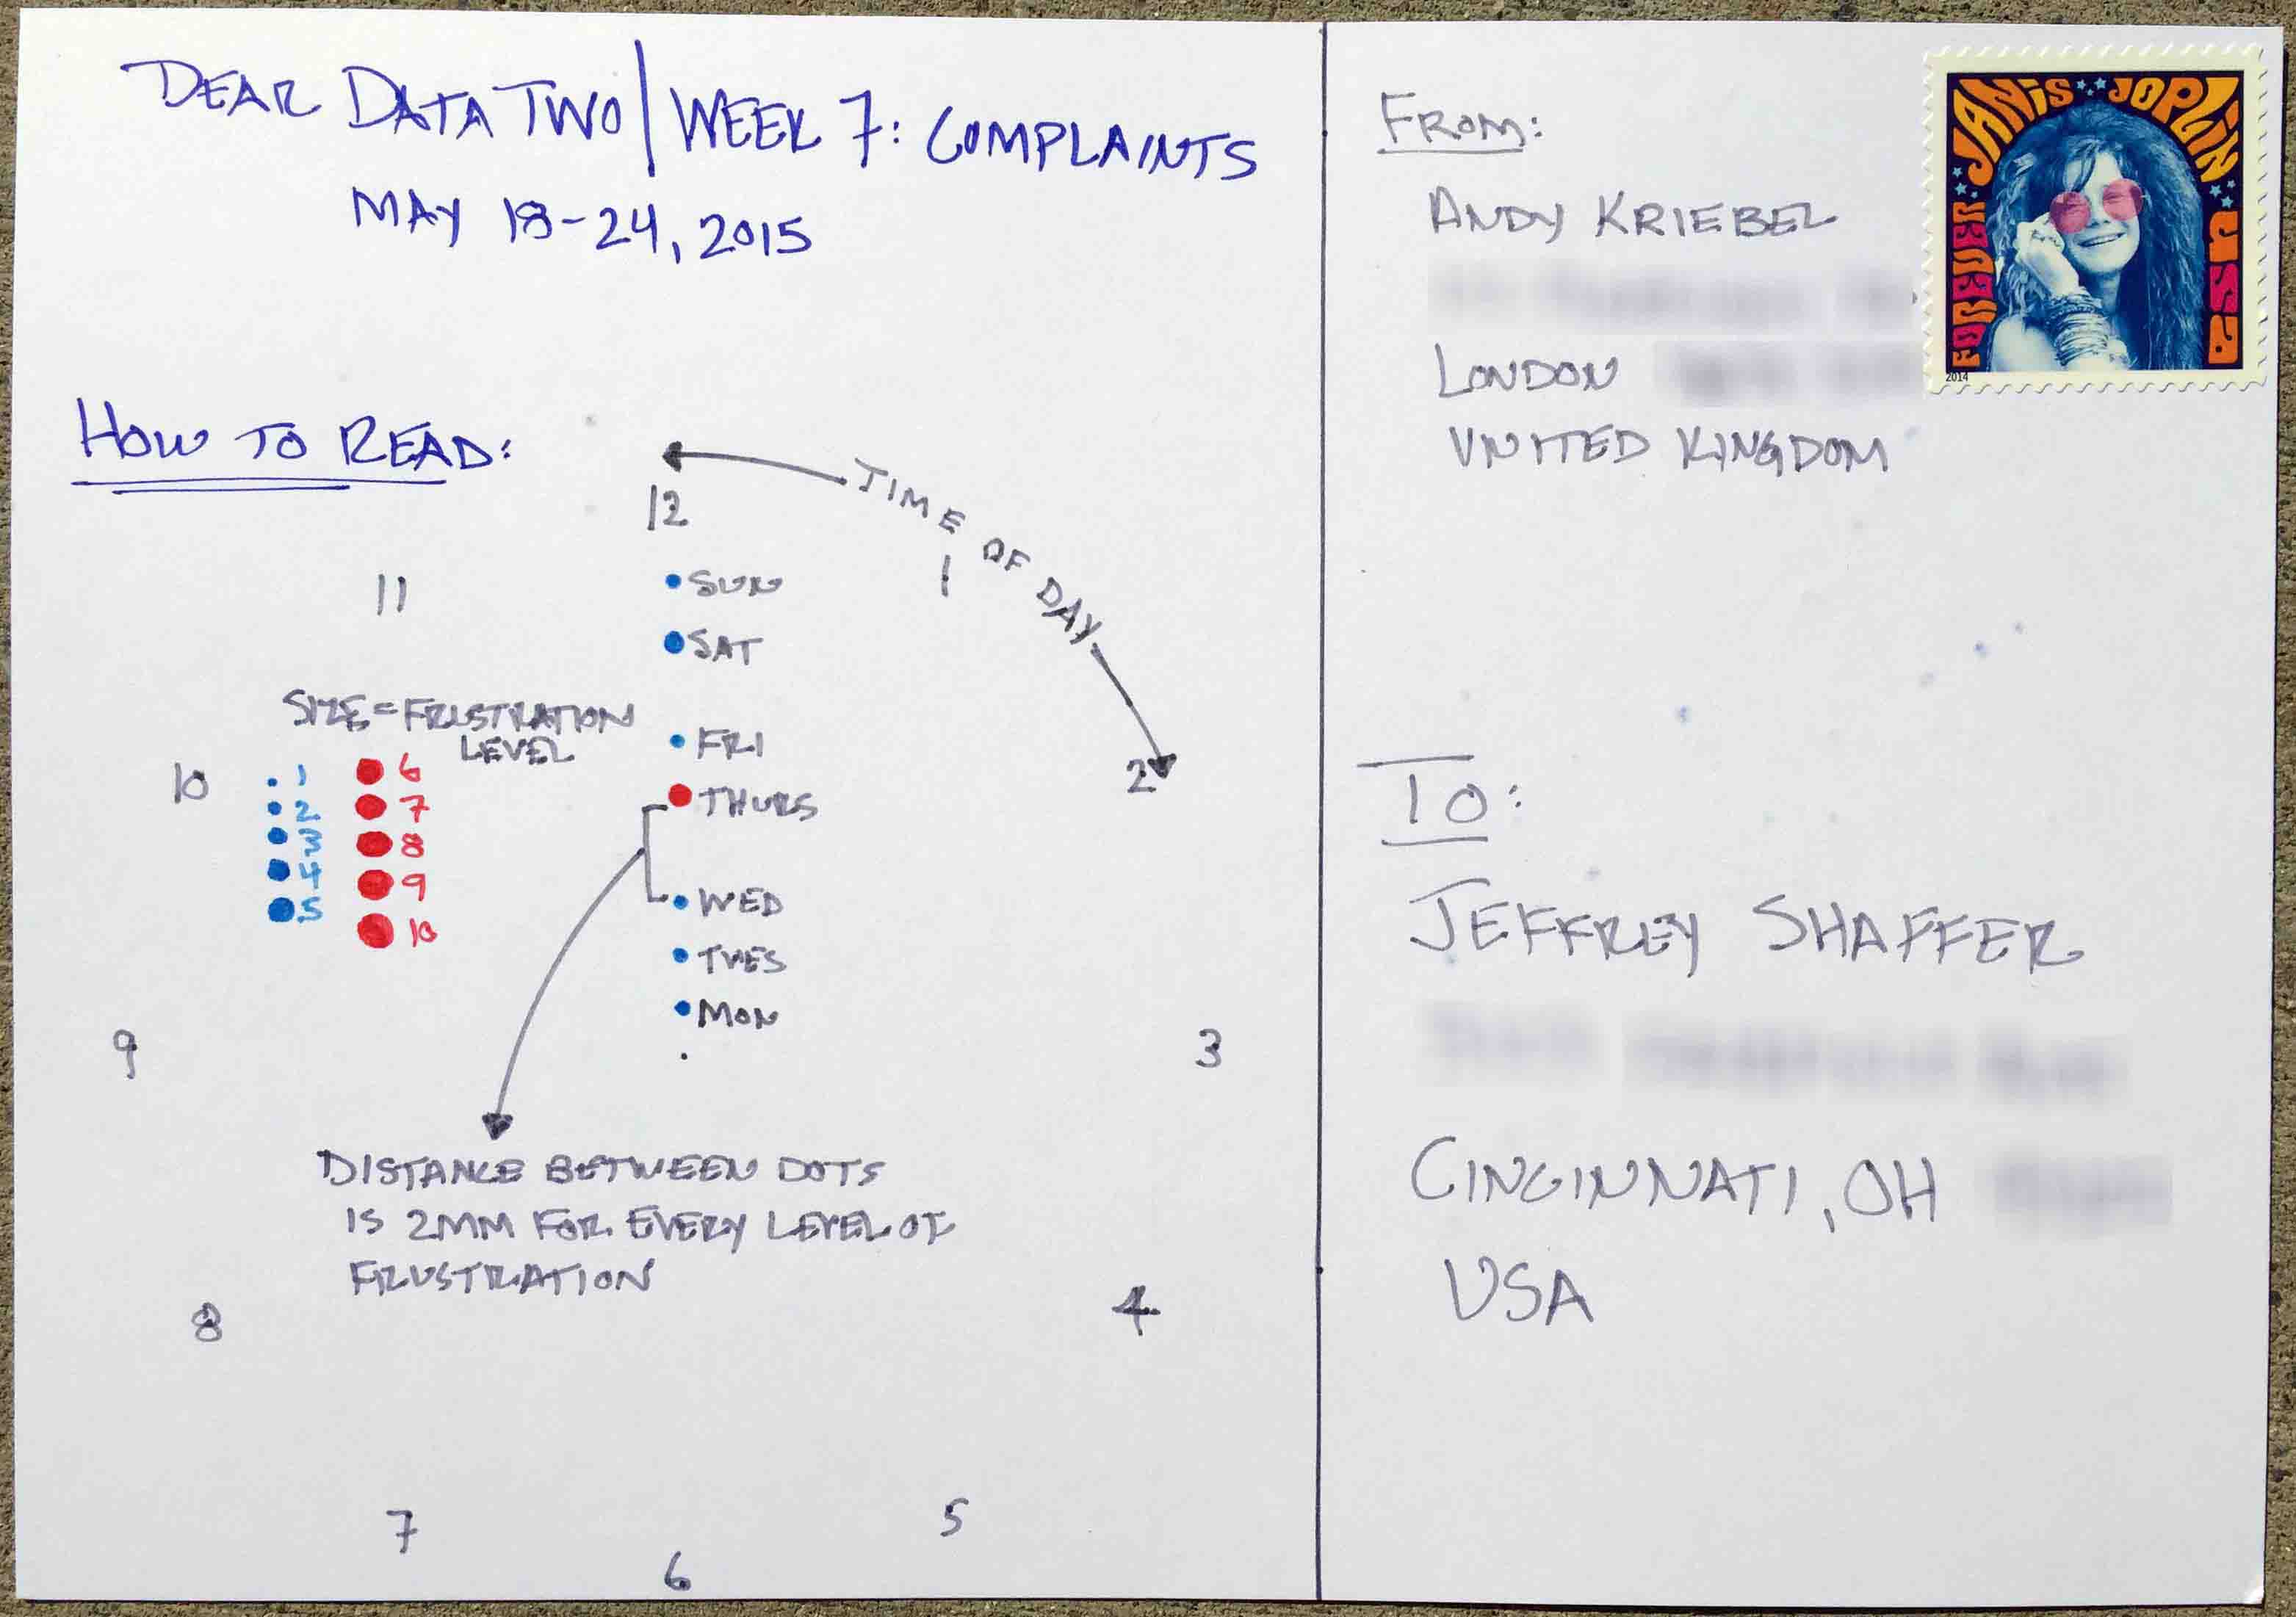 DEAR DATA TWO | WEEK 7: COMPLAINTS
MAY 18-24, 2015
HOW TO READ:
TIME OF DAY
12
11
1
SUN
SAT
SIZE = FRUSTRATION
LEVEL
FRI
10
2
1 6
2 7
3 8
4 9
5 10
THURS
WED
TUES
MON
9
3
DISTANCE BETWEEN DOTS
IS 2MM FOR EVERY LEVEL OF
FRUSTRATION
8
4
7
5
6
FROM:
ANDY KRIEBEL
LONDON
UNITED KINGDOM
FOREVER JANIS JOPLIN USA
2014
TO:
JEFFREY SHAFFER
CINCINNATI, OH
USA